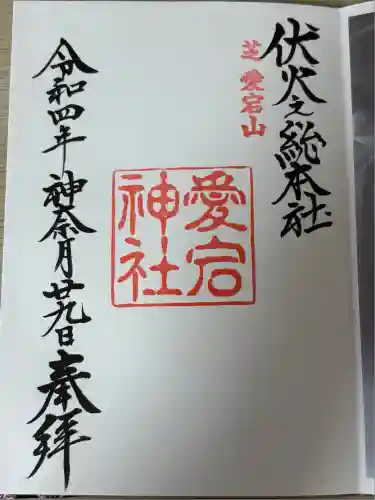 伏火之総本社
芝愛宕山
愛宕
神社
令和四年神奈月廿九日奉拝